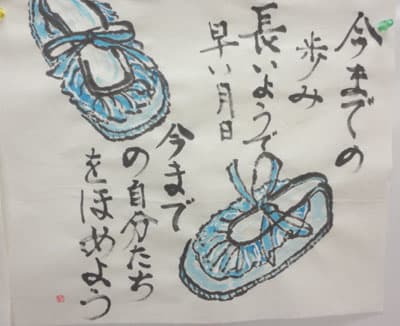 今までの
歩み
長いようで
早い月日
今まで
の自分たち
をほめよう